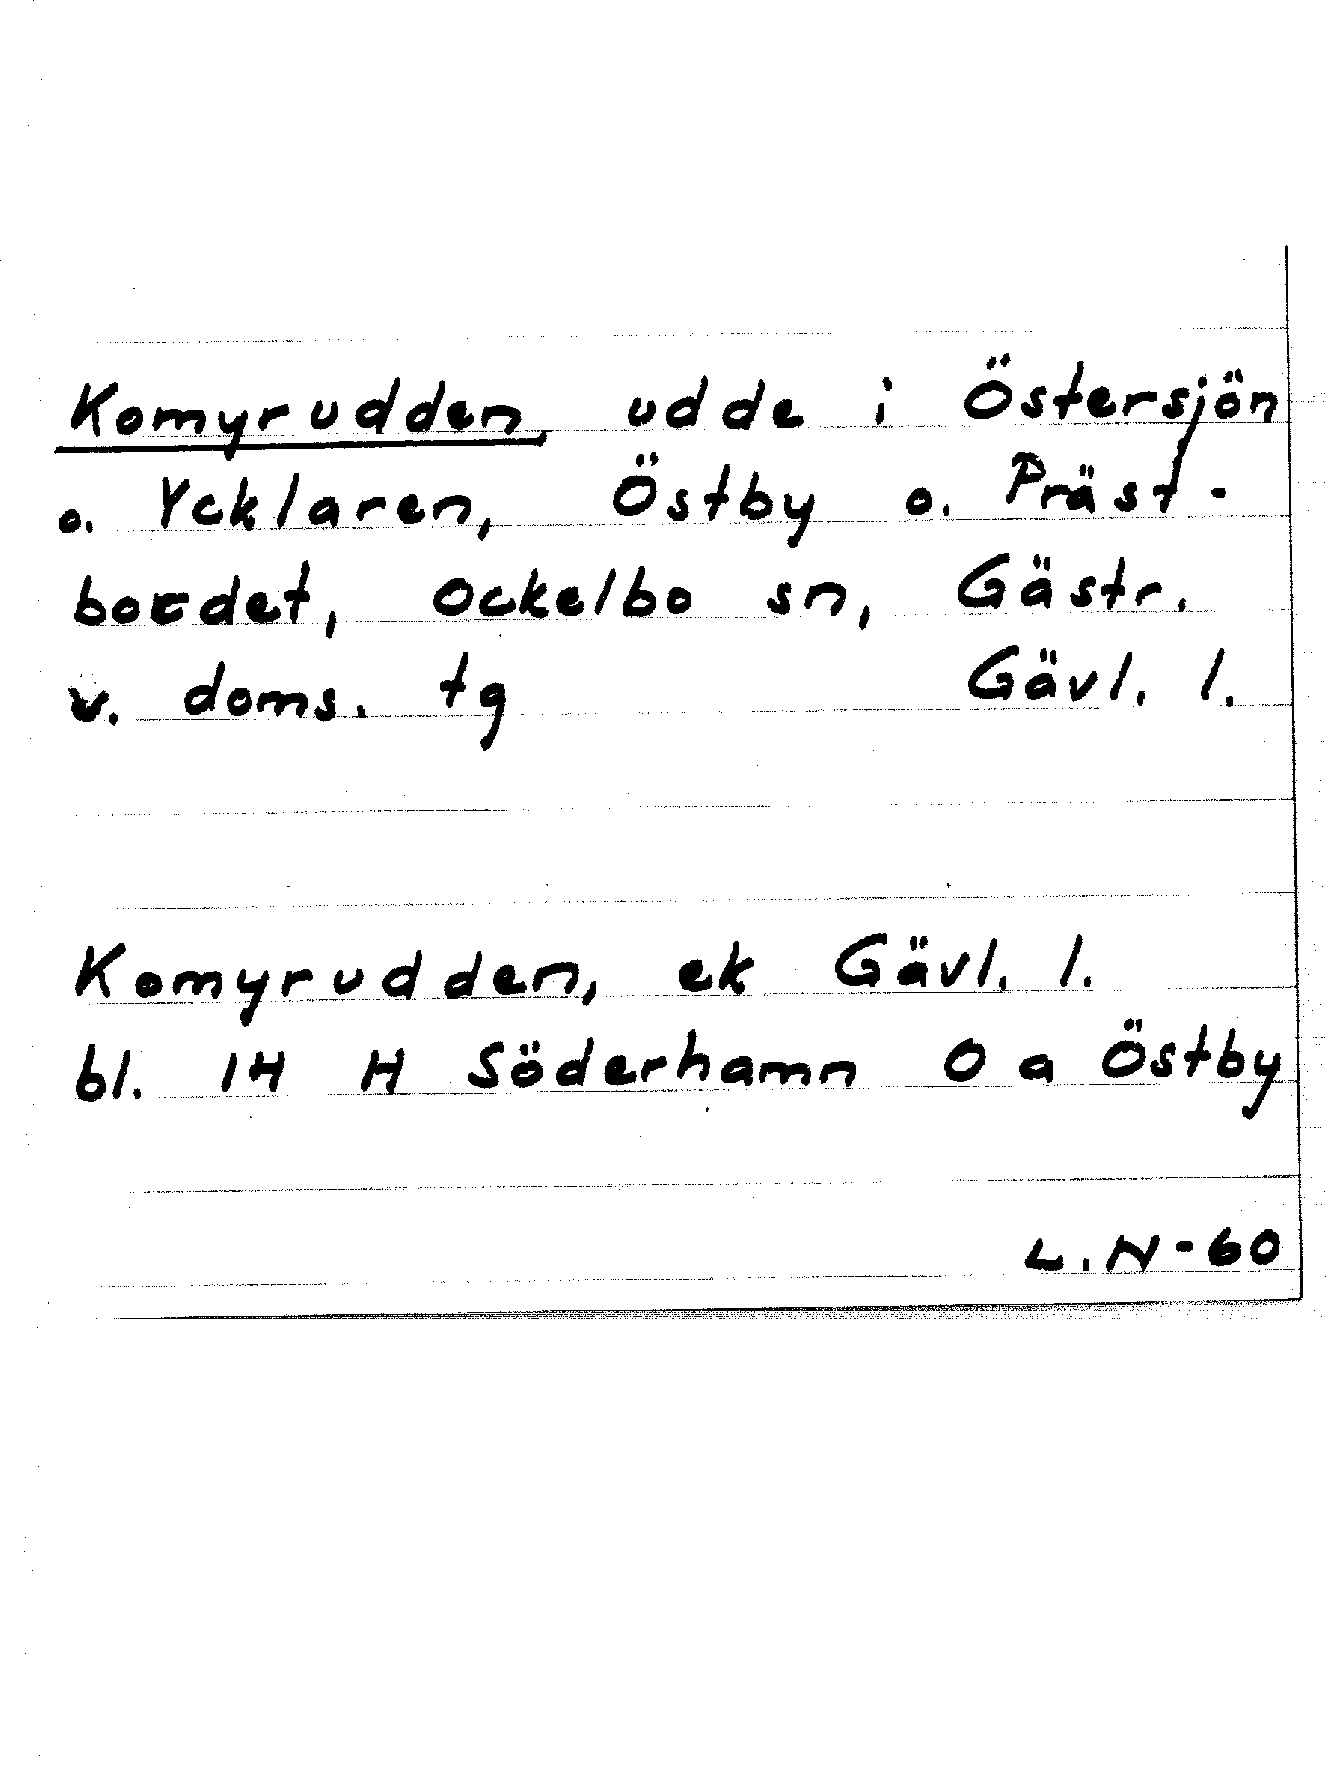 Komyrudden, udde i Östersjön
o. Ycklaren, Östby o. Präst-
bordet, Ockelbo sn, Gästr.
v. doms. tg Gävl. l.
Komyrudden, ek Gävl. l.
bl. 14 H Söderhamn O a Östby
L.N-60